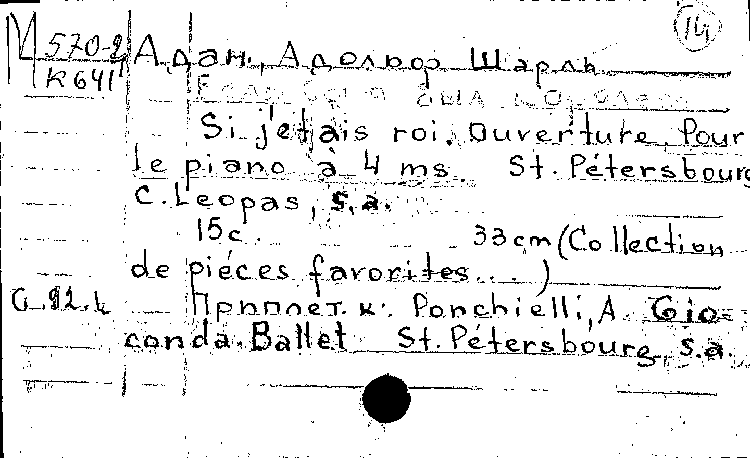 14
М 570-2 Адан, Адольф Шарль
К 641
Если бы я был королем
Si j'etais roi. Ouverture. Pour
le piano à 4 ms. St. Pétersbourg
C. Leopas, s.a.
15c. 33cm (Collection
de piéces favorites...)
Приплет. к: Ponchielli, A. Gio-
conda. Ballet St. Pétersbourg, s.a.